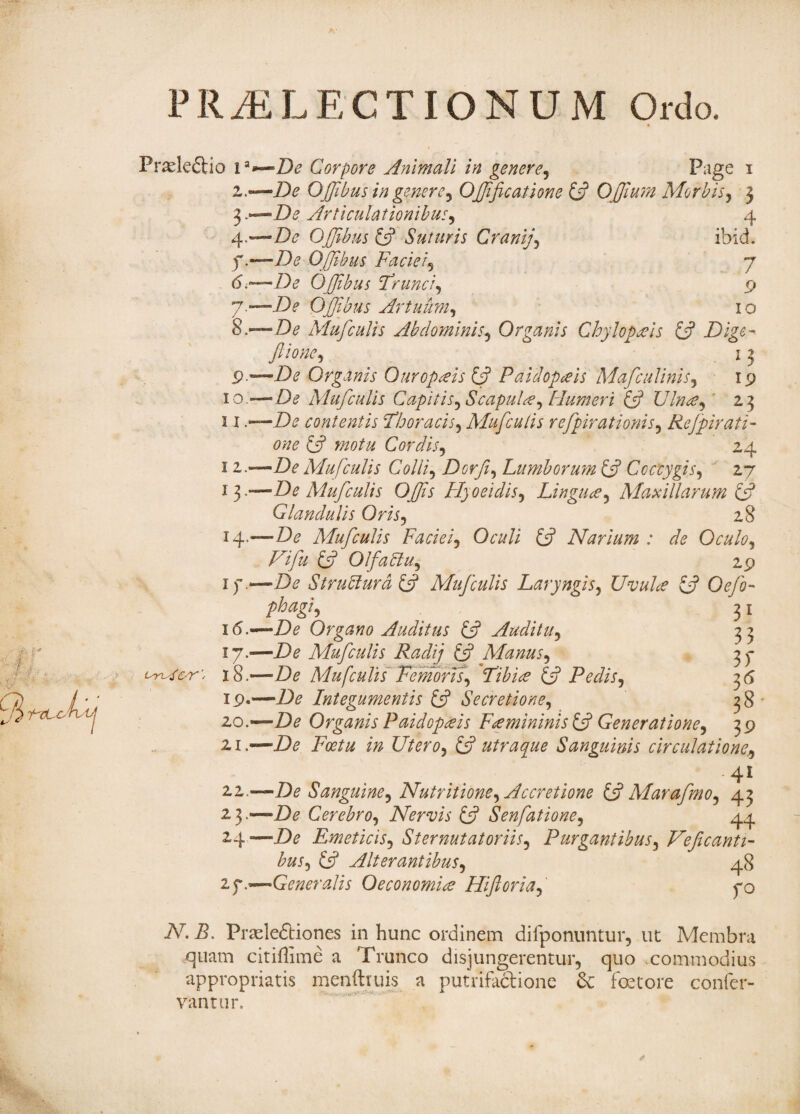 PRÆLECTIONUM Ordo.
Prælectio 1ª—De Corpore Animali in genere, Page 1
2.—De Oſſibus in genere, Oſſificatione & Oſſium Morbis, 3
3.—De Articulationibus, 4
4.—De Oſſibus & Suturis Cranij, ibid.
5.—De Oſſibus Faciei, 7
6.—De Oſſibus Trunci, 9
7.—De Oſſibus Artuum, 10
8.—De Muſculis Abdominis, Organis Chylopæis & Dige-
ſtione, 13
9.—De Organis Ouropæis & Paidopæis Maſculinis, 19
10.—De Muſculis Capitis, Scapulæ, Humeri & Ulnæ, 23
11.—De contentis Thoracis, Muſculis reſpirationis, Reſpirati-
one & motu Cordis, 24
12.—De Muſculis Colli, Dorſi, Lumborum & Coccygis, 27
13.—De Muſculis Oſſis Hyoeidis, Linguæ, Maxillarum &
Glandulis Oris, 28
14.—De Muſculis Faciei, Oculi & Narium : de Oculo,
Viſu & Olfactu, 29
15.—De Structurâ & Muſculis Laryngis, Uvulæ & Oeſo-
phagi, 31
16.—De Organo Auditus & Auditu, 33
17.—De Muſculis Radij & Manus, 35
18.—De Muſculis Femoris, Tibiæ & Pedis, 36
19.—De Integumentis & Secretione, 38
20.—De Organis Paidopæis Fæmininis & Generatione, 39
21.—De Fœtu in Utero, & utraque Sanguinis circulatione,
41
22.—De Sanguine, Nutritione, Accretione & Maraſmo, 43
23.—De Cerebro, Nervis & Senſatione, 44
24.—De Emeticis, Sternutatoriis, Purgantibus, Veſicanti-
bus, & Alterantibus, 48
25.—Generalis Oeconomiæ Hiſtoria, 50
N. B. Prælectiones in hunc ordinem diſponuntur, ut Membra
quam citiſſimè a Trunco disjungerentur, quo commodius
appropriatis menſtruis a putrifactione & fœtore conſer-
vantur.